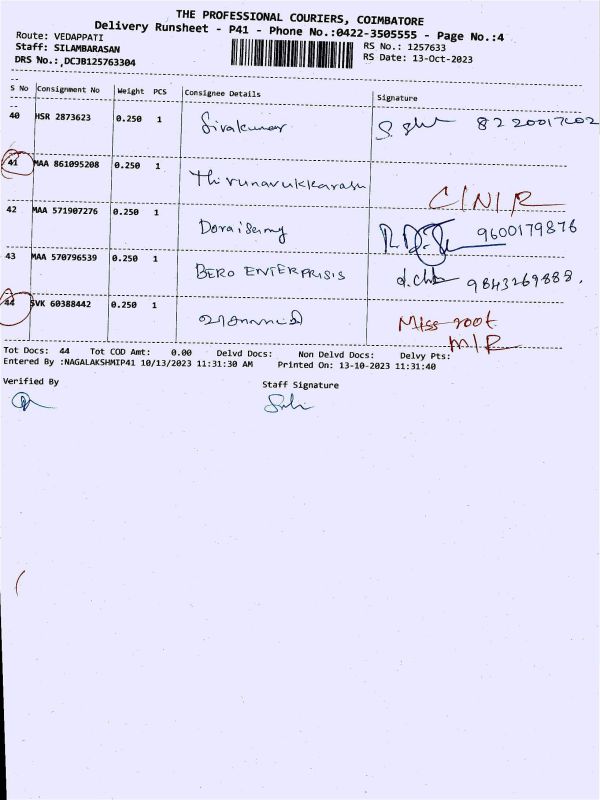 THE PROFESSIONAL COURIERS, COIMBATORE
Delivery Runsheet - P41 - Phone No.:0422-3505555 - Page No.:4
Route: VEDAPPATI
RS No.: 1257633
Staff: SILAMBARASAN
RS Date: 13-Oct-2023
DRS No.:,DCJB125763304
S No Consignment No Weight PCS Consignee Details Signature
40 HSR 2873623 0.250 1 Sivakumar 8220017602
41 MAA 861095208 0.250 1 Thirunavukkarasu C/N/R
42 MAA 571907276 0.250 1 Doraisamy 9600179876
43 MAA 570796539 0.250 1 BERO ENTERPRISIS 9843269888.
44 SVK 60388442 0.250 1 Miss root
M/R
Tot Docs: 44 Tot COD Amt: 0.00 Delvd Docs: Non Delvd Docs: Delvy Pts:
Entered By :NAGALAKSHMIP41 10/13/2023 11:31:30 AM Printed On: 13-10-2023 11:31:40
Verified By Staff Signature